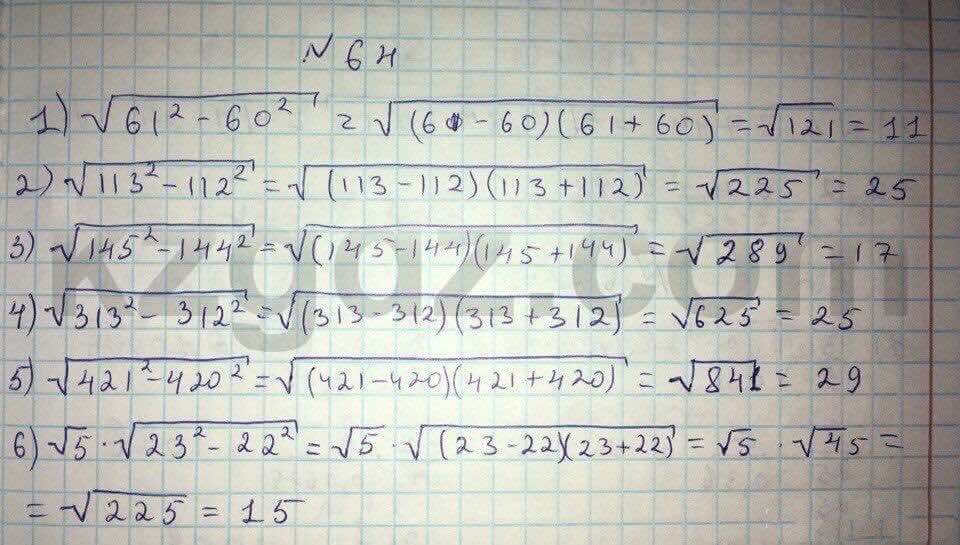 № 64
1) √(61² - 60²) = √((61 - 60)(61 + 60)) = √121 = 11
2) √(113² - 112²) = √((113 - 112)(113 + 112)) = √225 = 25
3) √(145² - 144²) = √((145 - 144)(145 + 144)) = √289 = 17
4) √(313² - 312²) = √((313 - 312)(313 + 312)) = √625 = 25
5) √(421² - 420²) = √((421 - 420)(421 + 420)) = √841 = 29
6) √5 · √(23² - 22²) = √5 · √((23 - 22)(23 + 22)) = √5 · √45 =
= √225 = 15